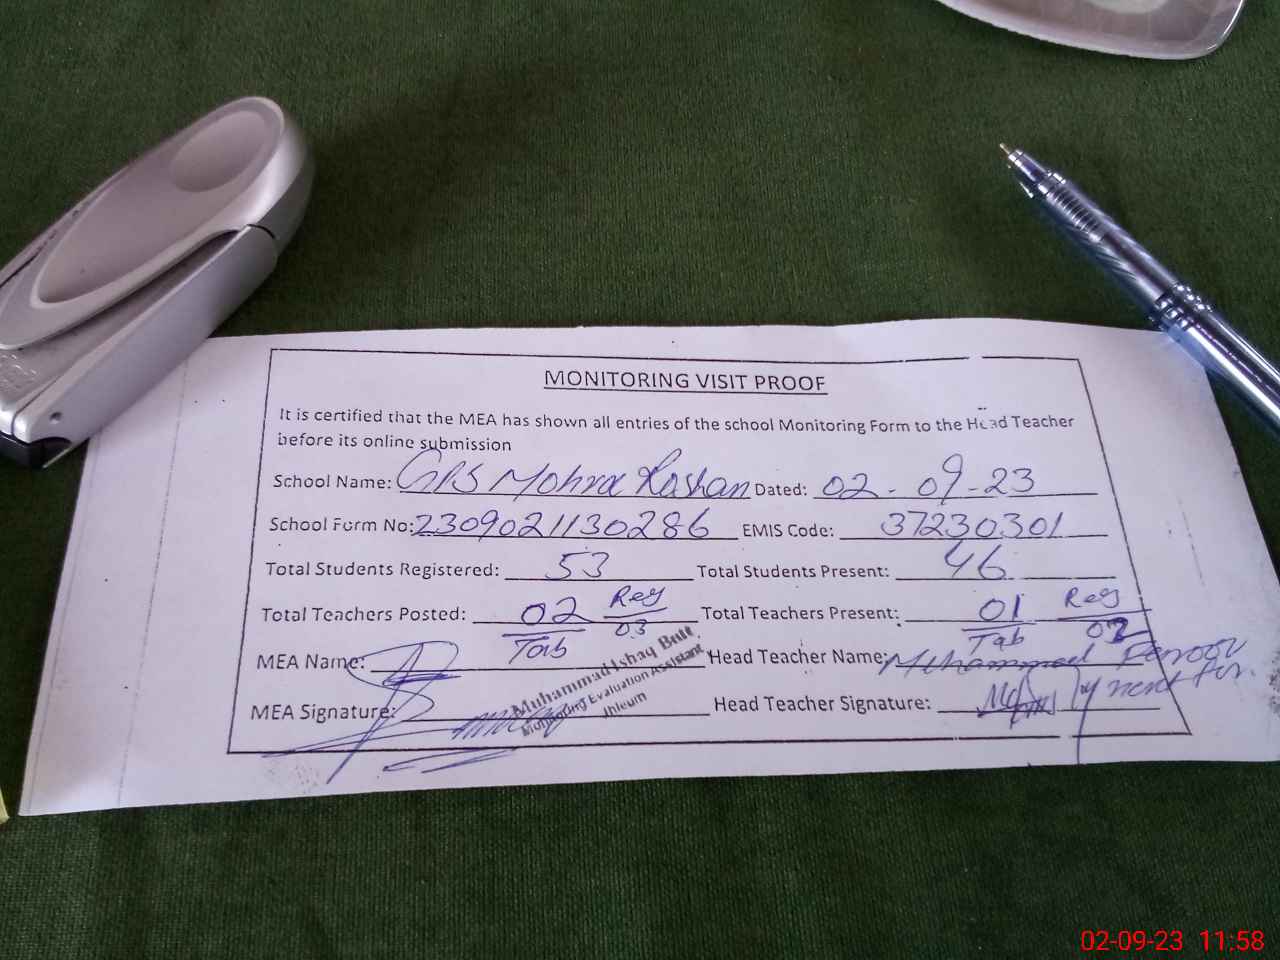 MONITORING VISIT PROOF
It is certified that the MEA has shown all entries of the school Monitoring Form to the Head Teacher
before its online submission
School Name: GPS Mohra Roshan Dated: 02-09-23
School Form No: 2309021130286 EMIS Code: 37230301
Total Students Registered: 53 Total Students Present: 46
Total Teachers Posted: 02 Tab Reg 03 Total Teachers Present: 01 Tab Reg 02
MEA Name: Head Teacher Name: Muhammad
MEA Signature: Head Teacher Signature:
Muhammad Ishaq Butt
Monitoring Evaluation Assistant
Jhleum
02-09-23 11:58